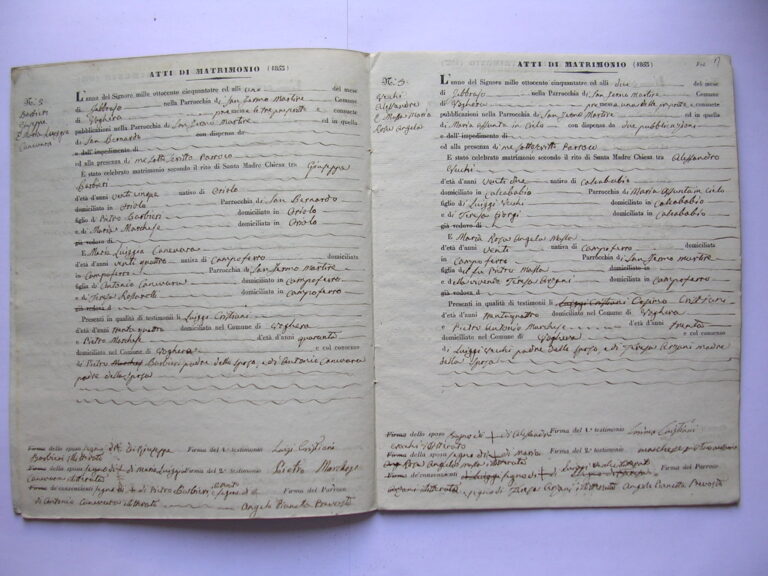 ATTI DI MATRIMONIO (1853)
N.° 3
Barbieri
Giuseppe
E Maria Luiggia
Canevara
L'anno del Signore mille ottocento cinquantatre ed alli uno del mese
di Febbrajo nella Parrocchia di San Fermo Martire Comune
di Voghera premesse le tre proposte e
pubblicazioni nella Parrocchia di San Fermo Martire ed in quella
di San Bernardo con dispensa da
e dall'impedimento di
ed alla presenza di me Sottoscritto Parroco
È stato celebrato matrimonio secondo il rito di Santa Madre Chiesa tra Giuseppe
Barbieri
d'età d'anni venti cinque nativo di Oriolo
domiciliato in Oriolo Parrocchia di San Bernardo
figlio di Pietro Barbieri domiciliato in Oriolo
e di Maria Marchese domiciliata in Oriolo
già vedovo di
E Maria Luiggia Canevara
d'età d'anni venti quattro nativa di Campoferro domiciliata
in Campoferro Parrocchia di San Fermo martire
figlia di Antonio Canevara domiciliato in Campoferro
e di Teresa domiciliata in Campoferro
già vedova di
Presenti in qualità di testimonii li Luiggi Cristiani
d'età d'anni trenta quattro domiciliato nel Comune di Voghera
e Pietro Marchese d'età d'anni quaranta
domiciliato nel Comune di Voghera e col consenso
di Pietro Barbieri padre dello sposo, e di Antonio Canevara
padre della sposa
Firma dello sposo segno di + di Giuseppe Firma del 1.° testimonio Luigi Cristiani
Barbieri illetterato
Firma della sposa segno di + di Maria Luiggia Firma del 2.° testimonio Pietro Marchese
Canevara illetterata
Firma de' consenzienti segno di + di Pietro Barbieri illetterato e segno di + Firma del Parroco
di Antonio Canevara illetterato Angelo Prevosto
ATTI DI MATRIMONIO (1853)
N.° 5
Vecchi
Alessandro
E Maria
Rosa Angela
L'anno del Signore mille ottocento cinquantatre ed alli due del mese
di Febbrajo nella Parrocchia di San Fermo Martire Comune
di Voghera premessa una delle proposte e
pubblicazioni nella Parrocchia di San Fermo Martire ed in quella
di Maria Assunta in Cielo con dispensa da due pubblicazioni
e dall'impedimento di
ed alla presenza di me Sottoscritto Parroco
È stato celebrato matrimonio secondo il rito di Santa Madre Chiesa tra Alessandro
Vecchi
d'età d'anni venti due nativo di Calcababio
domiciliato in Calcababio Parrocchia di Maria Assunta in cielo
figlio di Luiggi Vecchi domiciliato in Calcababio
e di Teresa Giorgi domiciliata in Calcababio
già vedovo di
E Maria Rosa Angela
d'età d'anni venti nativa di Campoferro domiciliata
in Campoferro Parrocchia di San Fermo martire
figlia del fu Pietro domiciliato in
e della vivente Teresa domiciliata in Campoferro
già vedova di
Presenti in qualità di testimonii li Luiggi Cristiani Cristiani
d'età d'anni domiciliato nel Comune di Voghera
e Pietro Antonio Marchese d'età d'anni trenta
domiciliato nel Comune di Voghera e col consenso
di Luiggi Vecchi padre dello sposo, e di Teresa madre
della sposa
Firma dello sposo segno di + di Alessandro Firma del 1.° testimonio
Vecchi illetterato
Firma della sposa segno di + di Maria Firma del 2.° testimonio
Rosa Angela illetterata
Firma de' consenzienti segno di + di Luiggi Vecchi illetterato Firma del Parroco
e segno di Teresa illetterata Angelo Prevosto